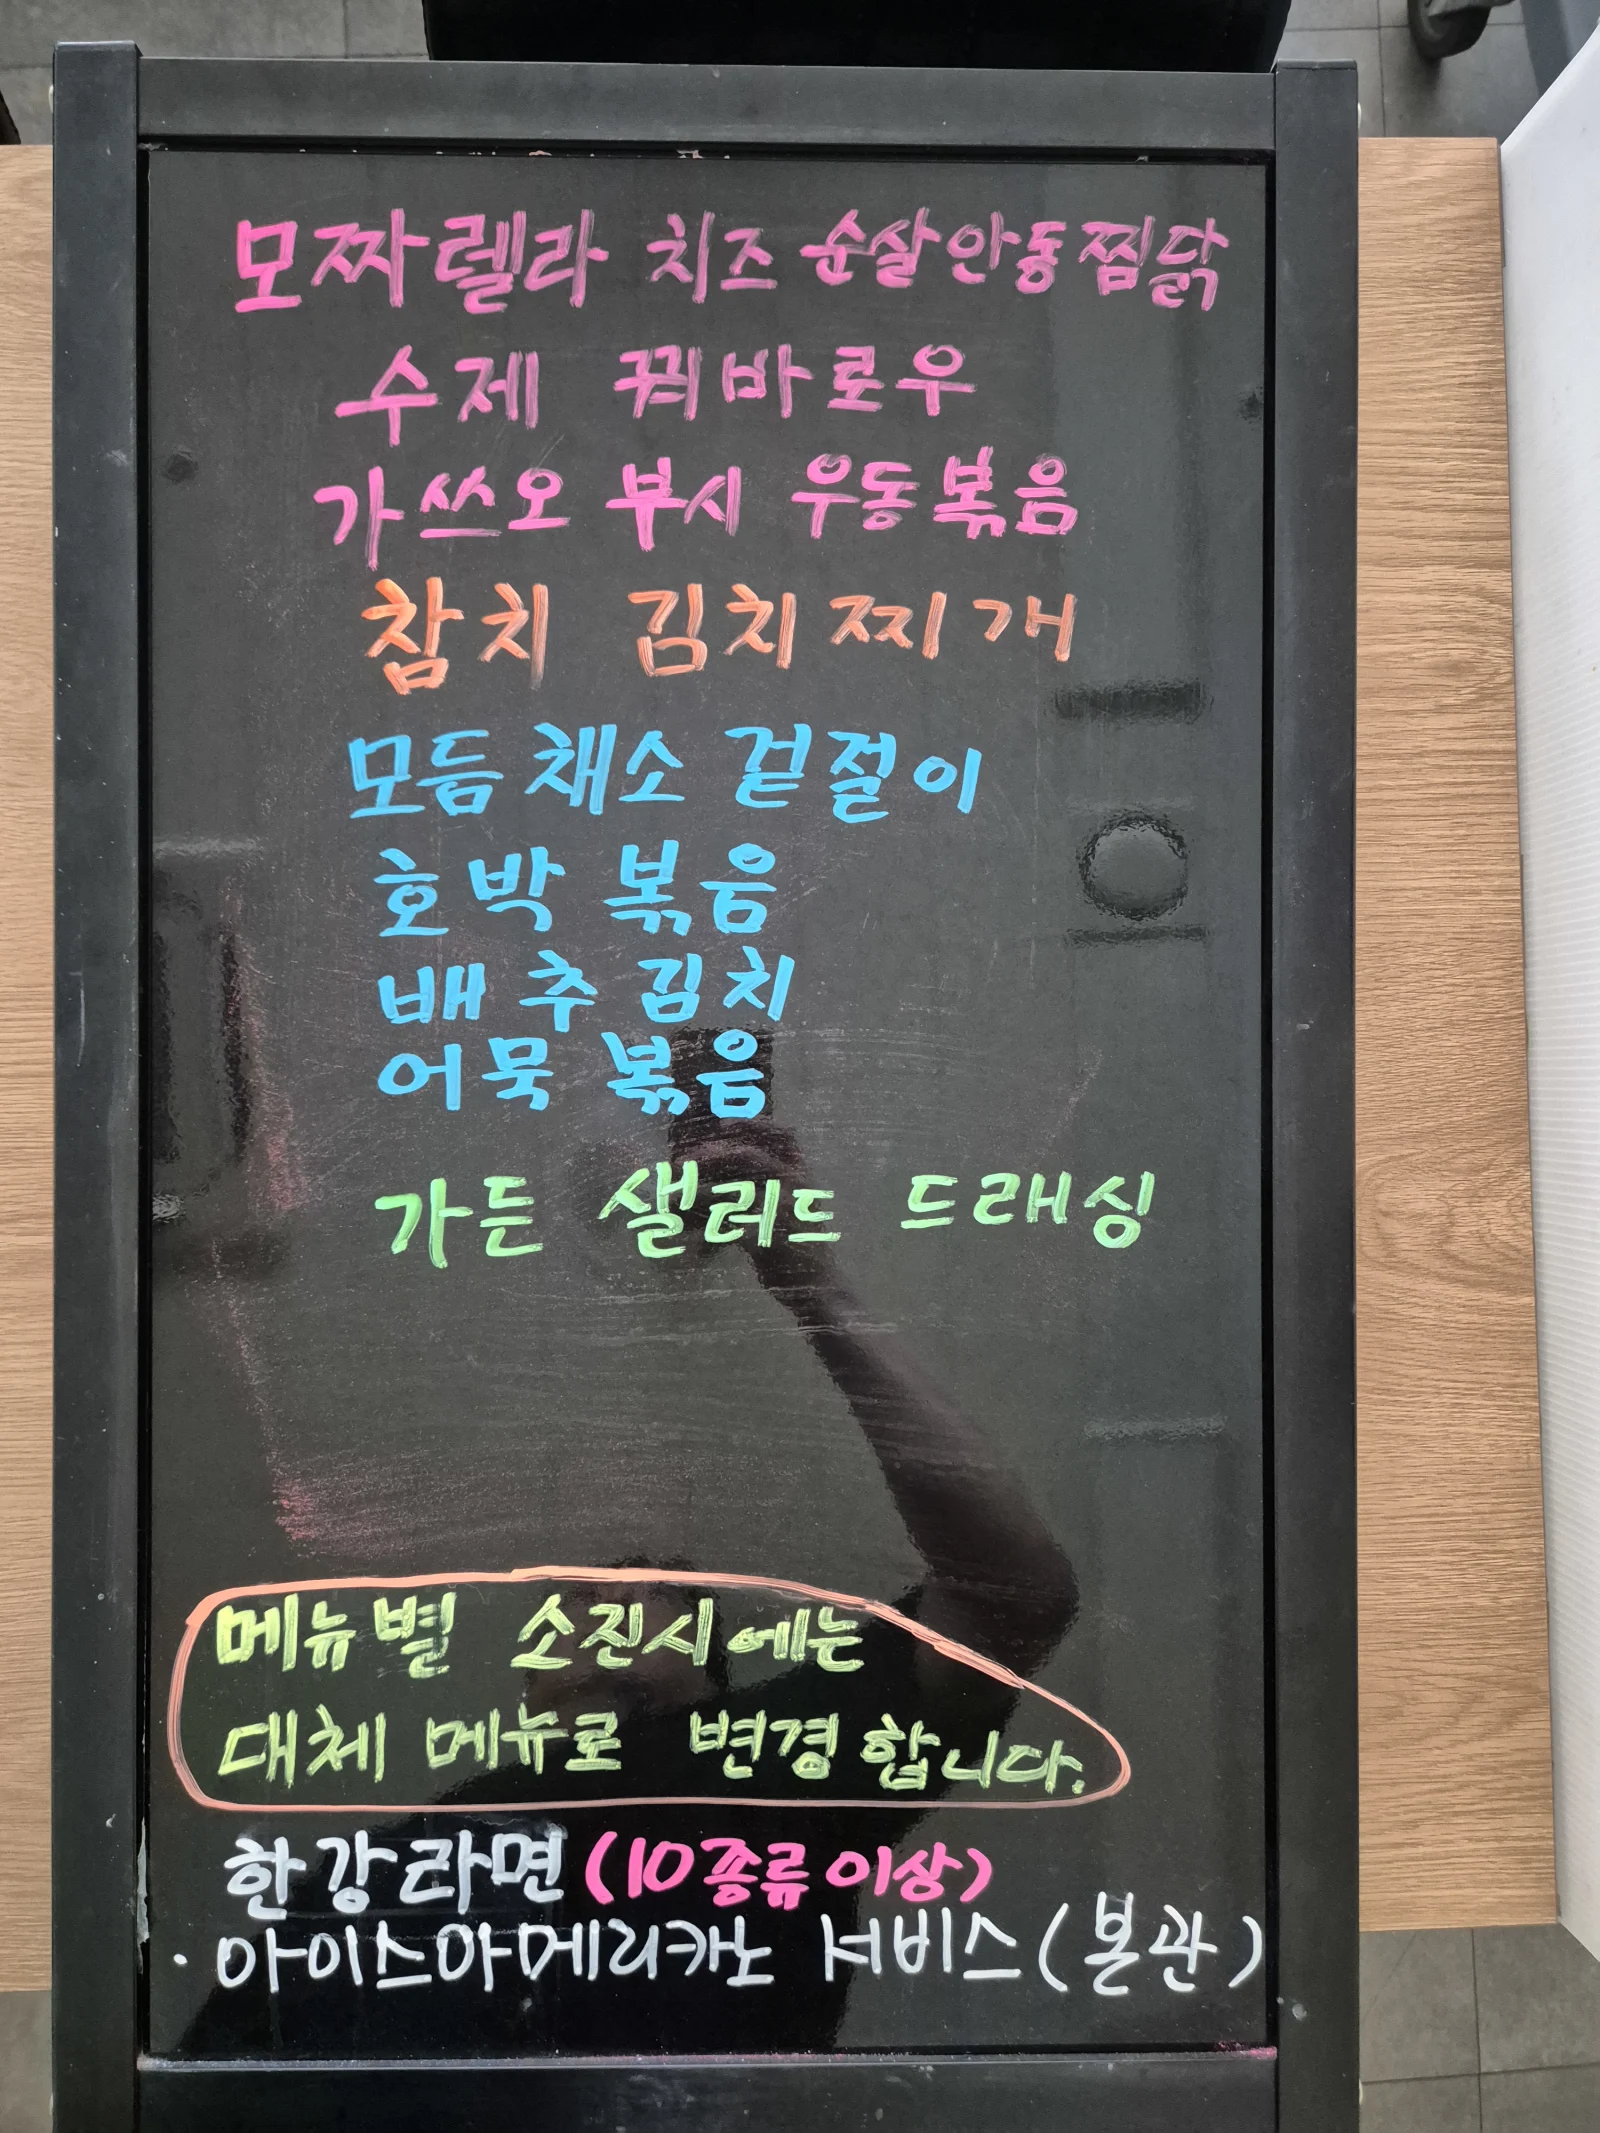 모짜렐라 치즈 순살안동찜닭
수제 꿔바로우
가쓰오 부시 우동볶음
참치 김치찌개
모듬채소 겉절이
호박 볶음
배추김치
어묵 볶음
가든 샐러드 드래싱
메뉴별 소진시에는
대체 메뉴로 변경합니다.
한강라면 (10종류이상)
· 아이스아메리카노 서비스(본관)